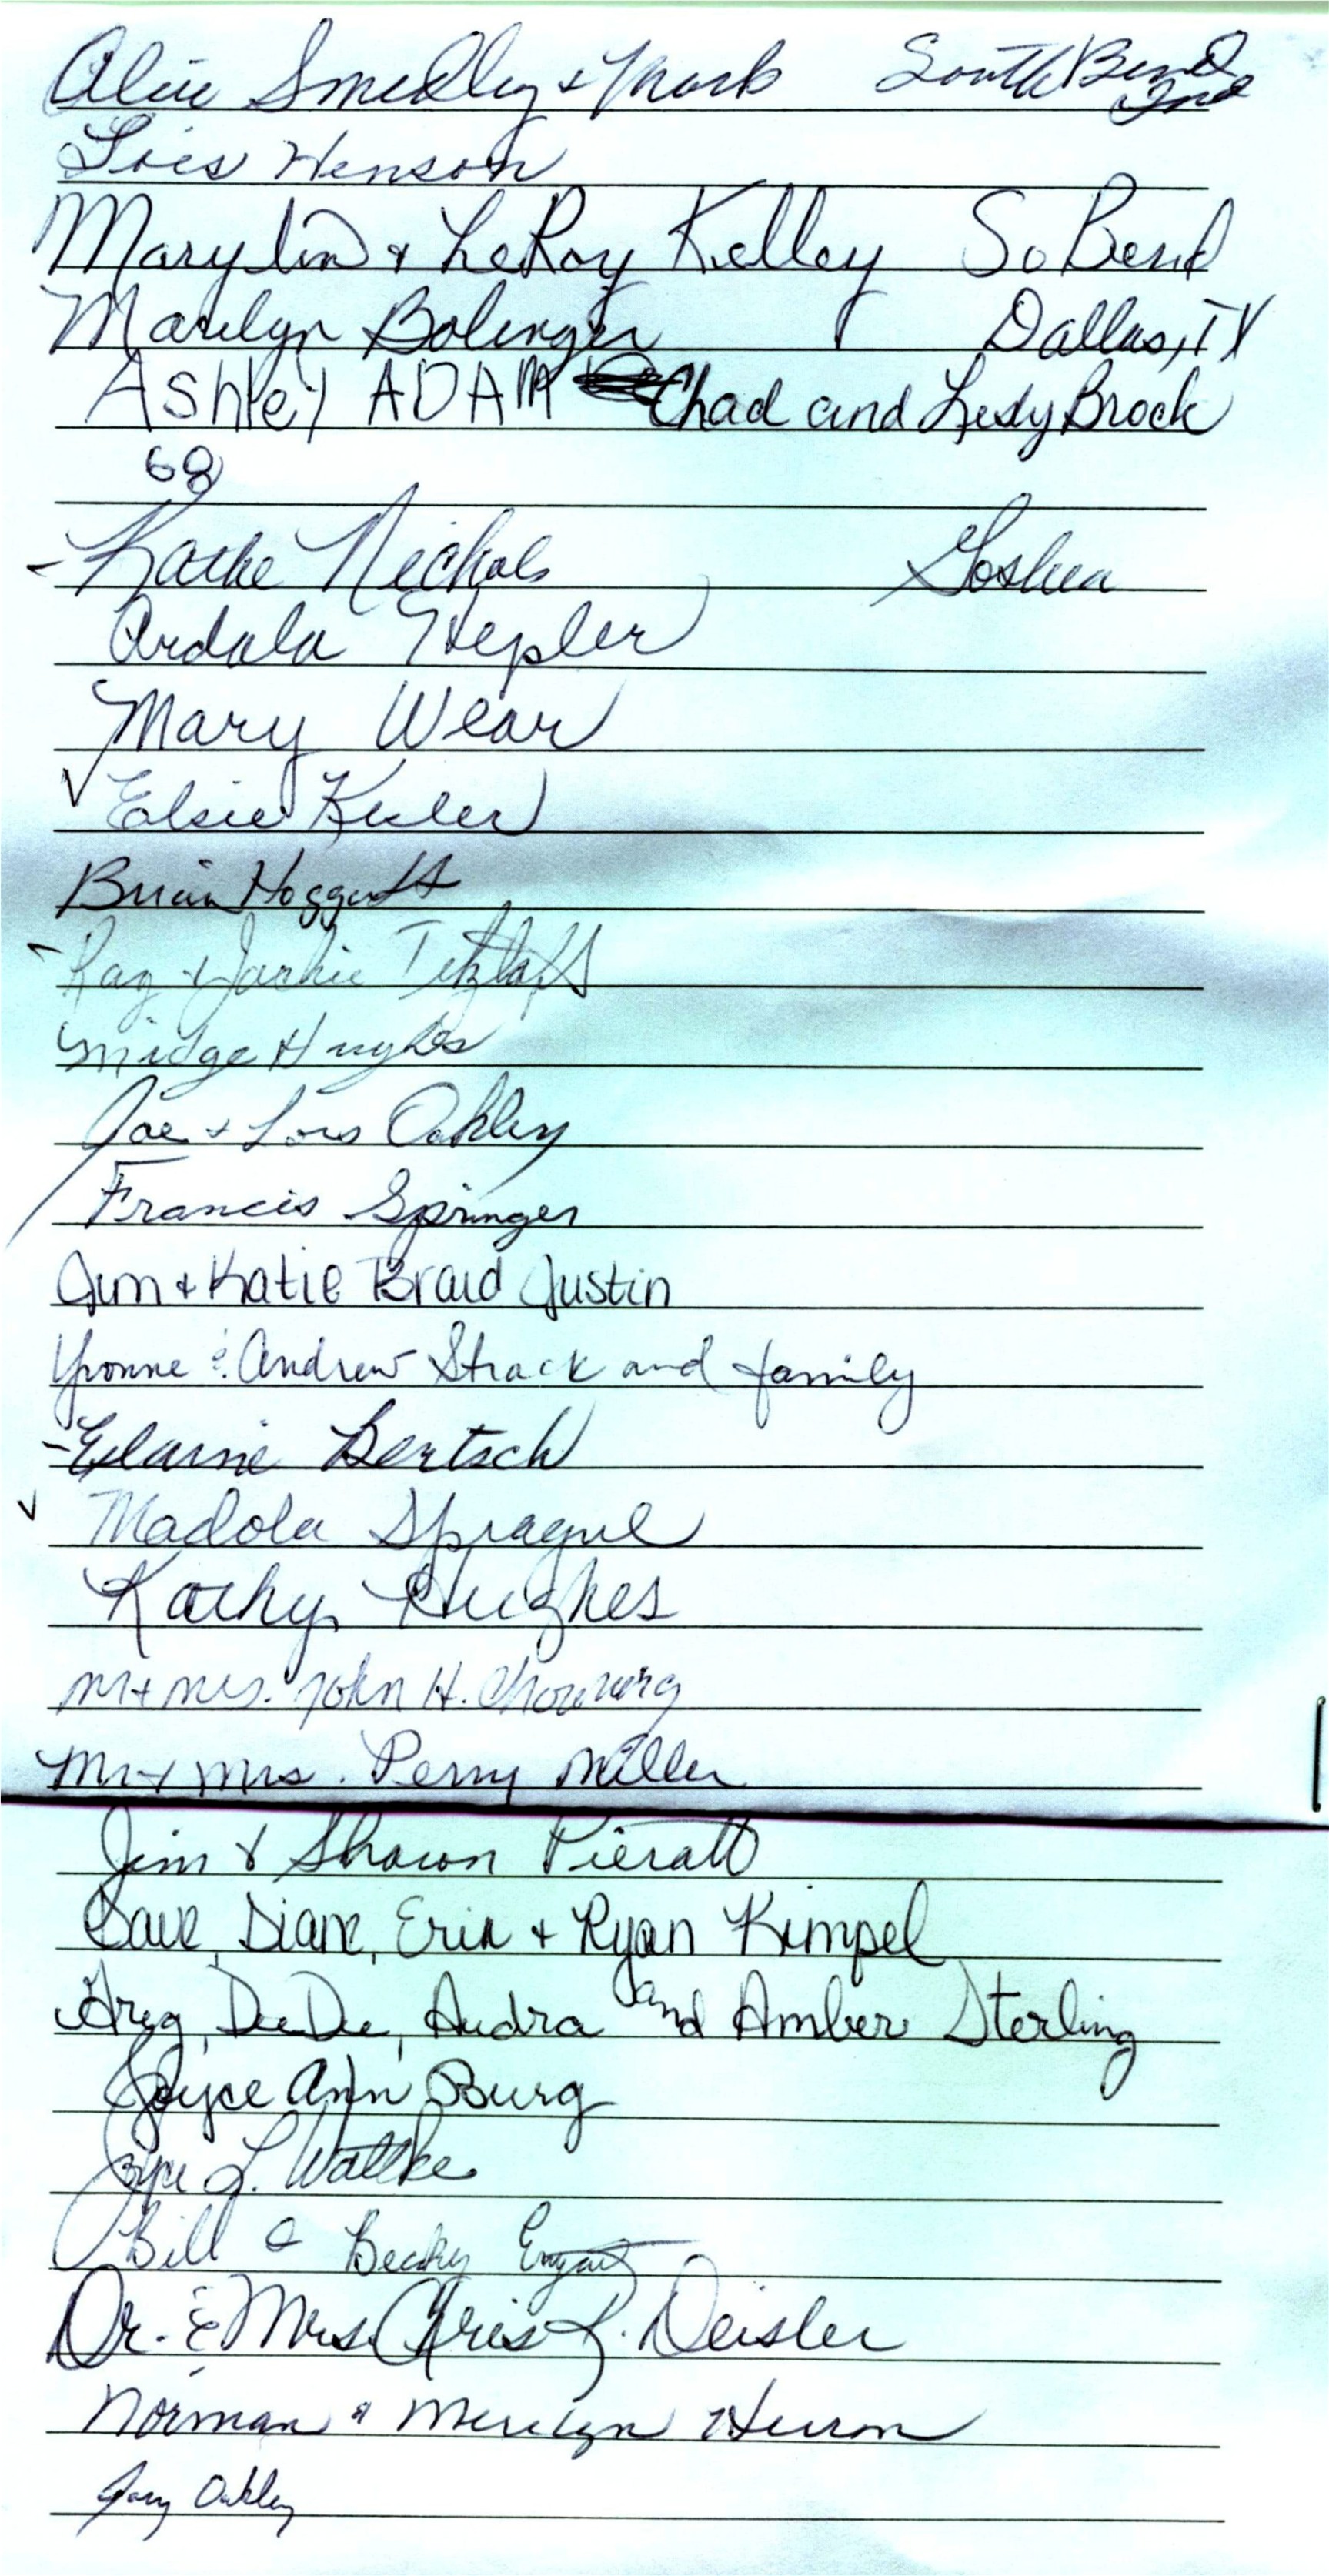 Alice Smedley + Mark South Bend Ind
Lois Henson
Marylin + LeRoy Kelley So Bend
Marilyn Bolinger Dallas, TX
Ashley ADAM Chad and Lesly Brock
68
Kathe Nichols Goshen
Ardala Hepler
Mary Wear
Elsie Keeler
Brian Hoggatt
Ray + Jackie Tetzlaff
Midge Hughes
Joe + Lois Oakley
Francis Springer
Jim + Katie Braid Justin
Yvonne & Andrew Strack and family
Elaine Bertsch
Madola Sprague
Kathy Hughes
Mr + Mrs. John H.
Mr + Mrs. Perry Miller
Jim & Sharon Pieratt
Dave, Diane, Erin + Ryan Kimpel
Greg, DeeDee, Audra and Amber Sterling
Joyce Ann Burg
Joyce L. Wattke
Bill & Becky
Dr. & Mrs. Chris R. Deisler
Norman & Merilyn Huron
Gary Oakley